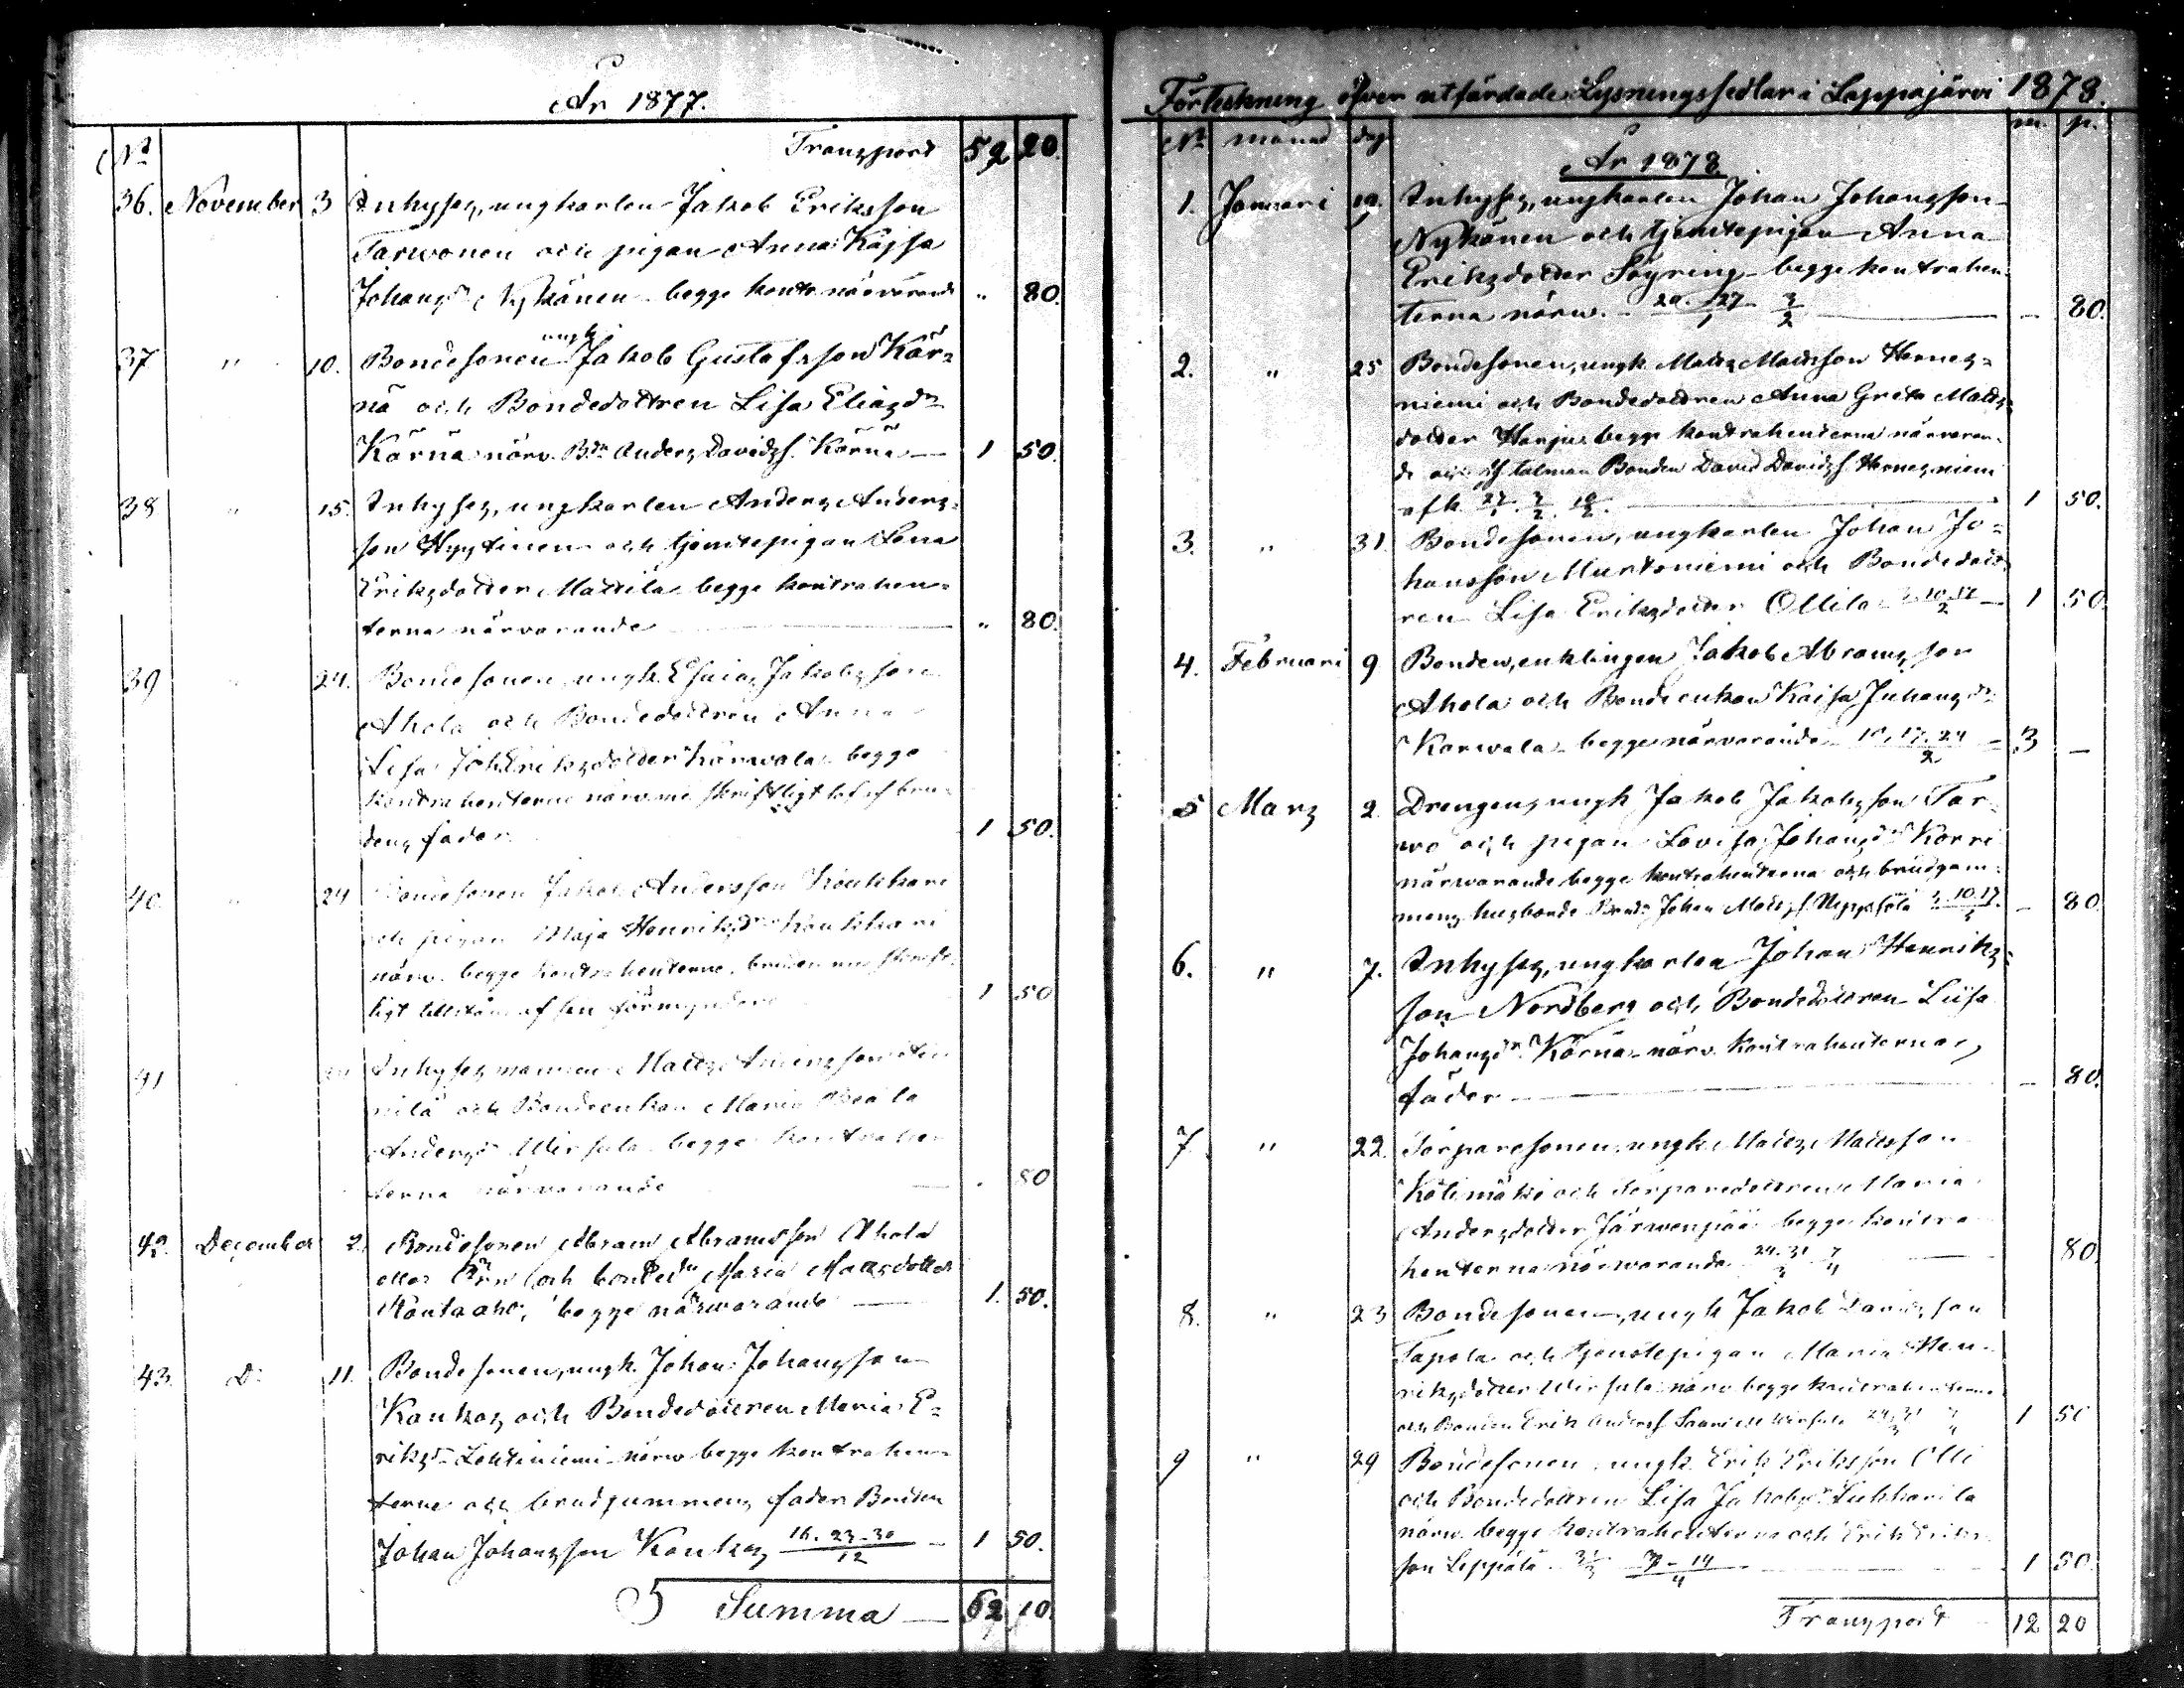 År 1877.
No Transport 52 20.
36. November 3 Inhyses, ungkarlen Jakob Eriksson
Tarwonen och pigan Anna Kajsa
Johansdr Nykänen begge kontr. närvarande " 80.
37 " 10. Bondesonen ungk. Jakob Gustafsson Kär=
nä och Bondedottren Lisa Eliasdr
Kärnä närv. Bdn Anders Davidss. Kärnä — 1 50.
38 " 15. Inhyses, ungkarlen Anders Anders=
son Hyytinen och tjenstepigan Lena
Eriksdotter Mattila begge kontrahen=
terna närvarande " 80.
39 " 24. Bondesonen ungk. Esaias Jakobsson
Ahola och Bondedottren Anna
Lisa Johan Eriksdotter Karwala begge
kontrahenterna närv. me skriftligt lof af bru=
dens fader 1 50.
40. " 24 Bondesonen Jakob Andersson Koukkari
och pigan Maja Henriksdr Koukkari
närv. begge kontrahenterna, bruden me skrift=
ligt tillstånd af sin förmyndare 1 50
41 Inhyses mannen Matts Andersson
och Bondeenkan Maria
Andersdr Wirsula begge kontrahen=
terna närvarande 80
42. December 2. Bondesonen Abram Abramsson Ahola
och bonded. Maria Mattsdotter
Rantaaho, begge närwarande — 1. 50.
43. Do 11. Bondesonen, ungk. Johan Johansson
Kankas och Bondedottren Maria E=
riksdr Lehtiniemi närv begge kontrahen=
terne och brudgummens fader Bonden
Johan Johansson Kankas 16. 23. 30 / 12 — 1 50.
Summa — 62 10.
Förteckning öfver utfärdade Lysningssedlar i Lappajärvi 1878.
No månad dag m. p.
År 1878
1. Januari 19. Inhyses, ungkarlen Johan Johansson
Nykänen och tjenstepigan Anna
Eriksdotter Söyring begge kontrahen=
terna närv. 20. 27 / 1 3 / 2 — 80.
2. " 25 Bondesonen, ungk. Matts Mattsson Hernes=
niemi och Bondedottren Anna Greta Matts=
dotter Harju begge kontrahenterna närvaran=
de och talman Bonden David Davidss. Hernesniemi
27 / 1 3 / 2 10 / 2 — 1 50.
3. " 31. Bondesonen, ungkarlen Johan Jo=
hansson Murtoniemi och Bondedott=
ren Lisa Eriksdotter Ollila 3. 10. 17 / 2 — 1 50.
4. Februari 9 Bonden, enklingen Jakob Abramsson
Ahola och Bondeenkan Kaisa Juhansdr
Karwala begge närvarande 10. 17. 24 / 2 — 3 —
5 Mars 2. Drengen, ungk Jakob Jakobsson Tar=
wo och pigan Lovisa Johansdr Korri
närvarande begge kontrahenterna och brudgum=
mens husbonde Bonden Johan Mattss. 3. 10. 17 / 3 — 80.
6. " 7. Inhyses, ungkarlen Johan Henriks=
son Nordberg och Bondedottren Liisa
Johansdr Kärnä närv. kontrahenternas
fäder — 80.
7 " 22. Torparesonen, ungk. Matts Mattsson
Kölimäki och torparedottren Maria
Andersdotter Järwenpää begge kontra=
henterna närwarande 24. 31 / 3 7 / 4 — 80
8. " 23 Bondesonen, ungk Jakob Davidsson
Tapola och tjenstepigan Maria Hen=
riksdotter Wirsula närv begge kontrahenterna
och Bonden Erik Anderss. Wirsula 24. 31 / 3 7 / 4 1 50
9 " 29 Bondesonen, ungk. Erik Eriksson Olli
och Bondedottren Lisa Jakobsdr
närv. begge kontrahenterna och Erik Eriks=
son Leppälä 31 / 3 7 - 14 / 4 — 1 50.
Transport 12 20